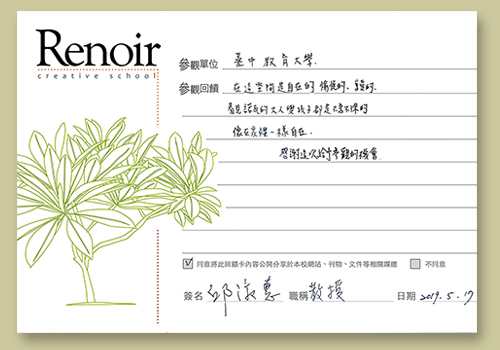 Renoir
creative school
參觀單位 臺中教育大學.
參觀回饋 在這空間是自在的、愉悅的、
看見
像在家裡一樣自在。
感謝這次給予參觀的機會.
☑ 同意將此回饋卡內容公開分享於本校網站、刊物、文件等相關媒體 ☐ 不同意
簽名 邱淑惠 職稱 教授 日期 2019.5.17